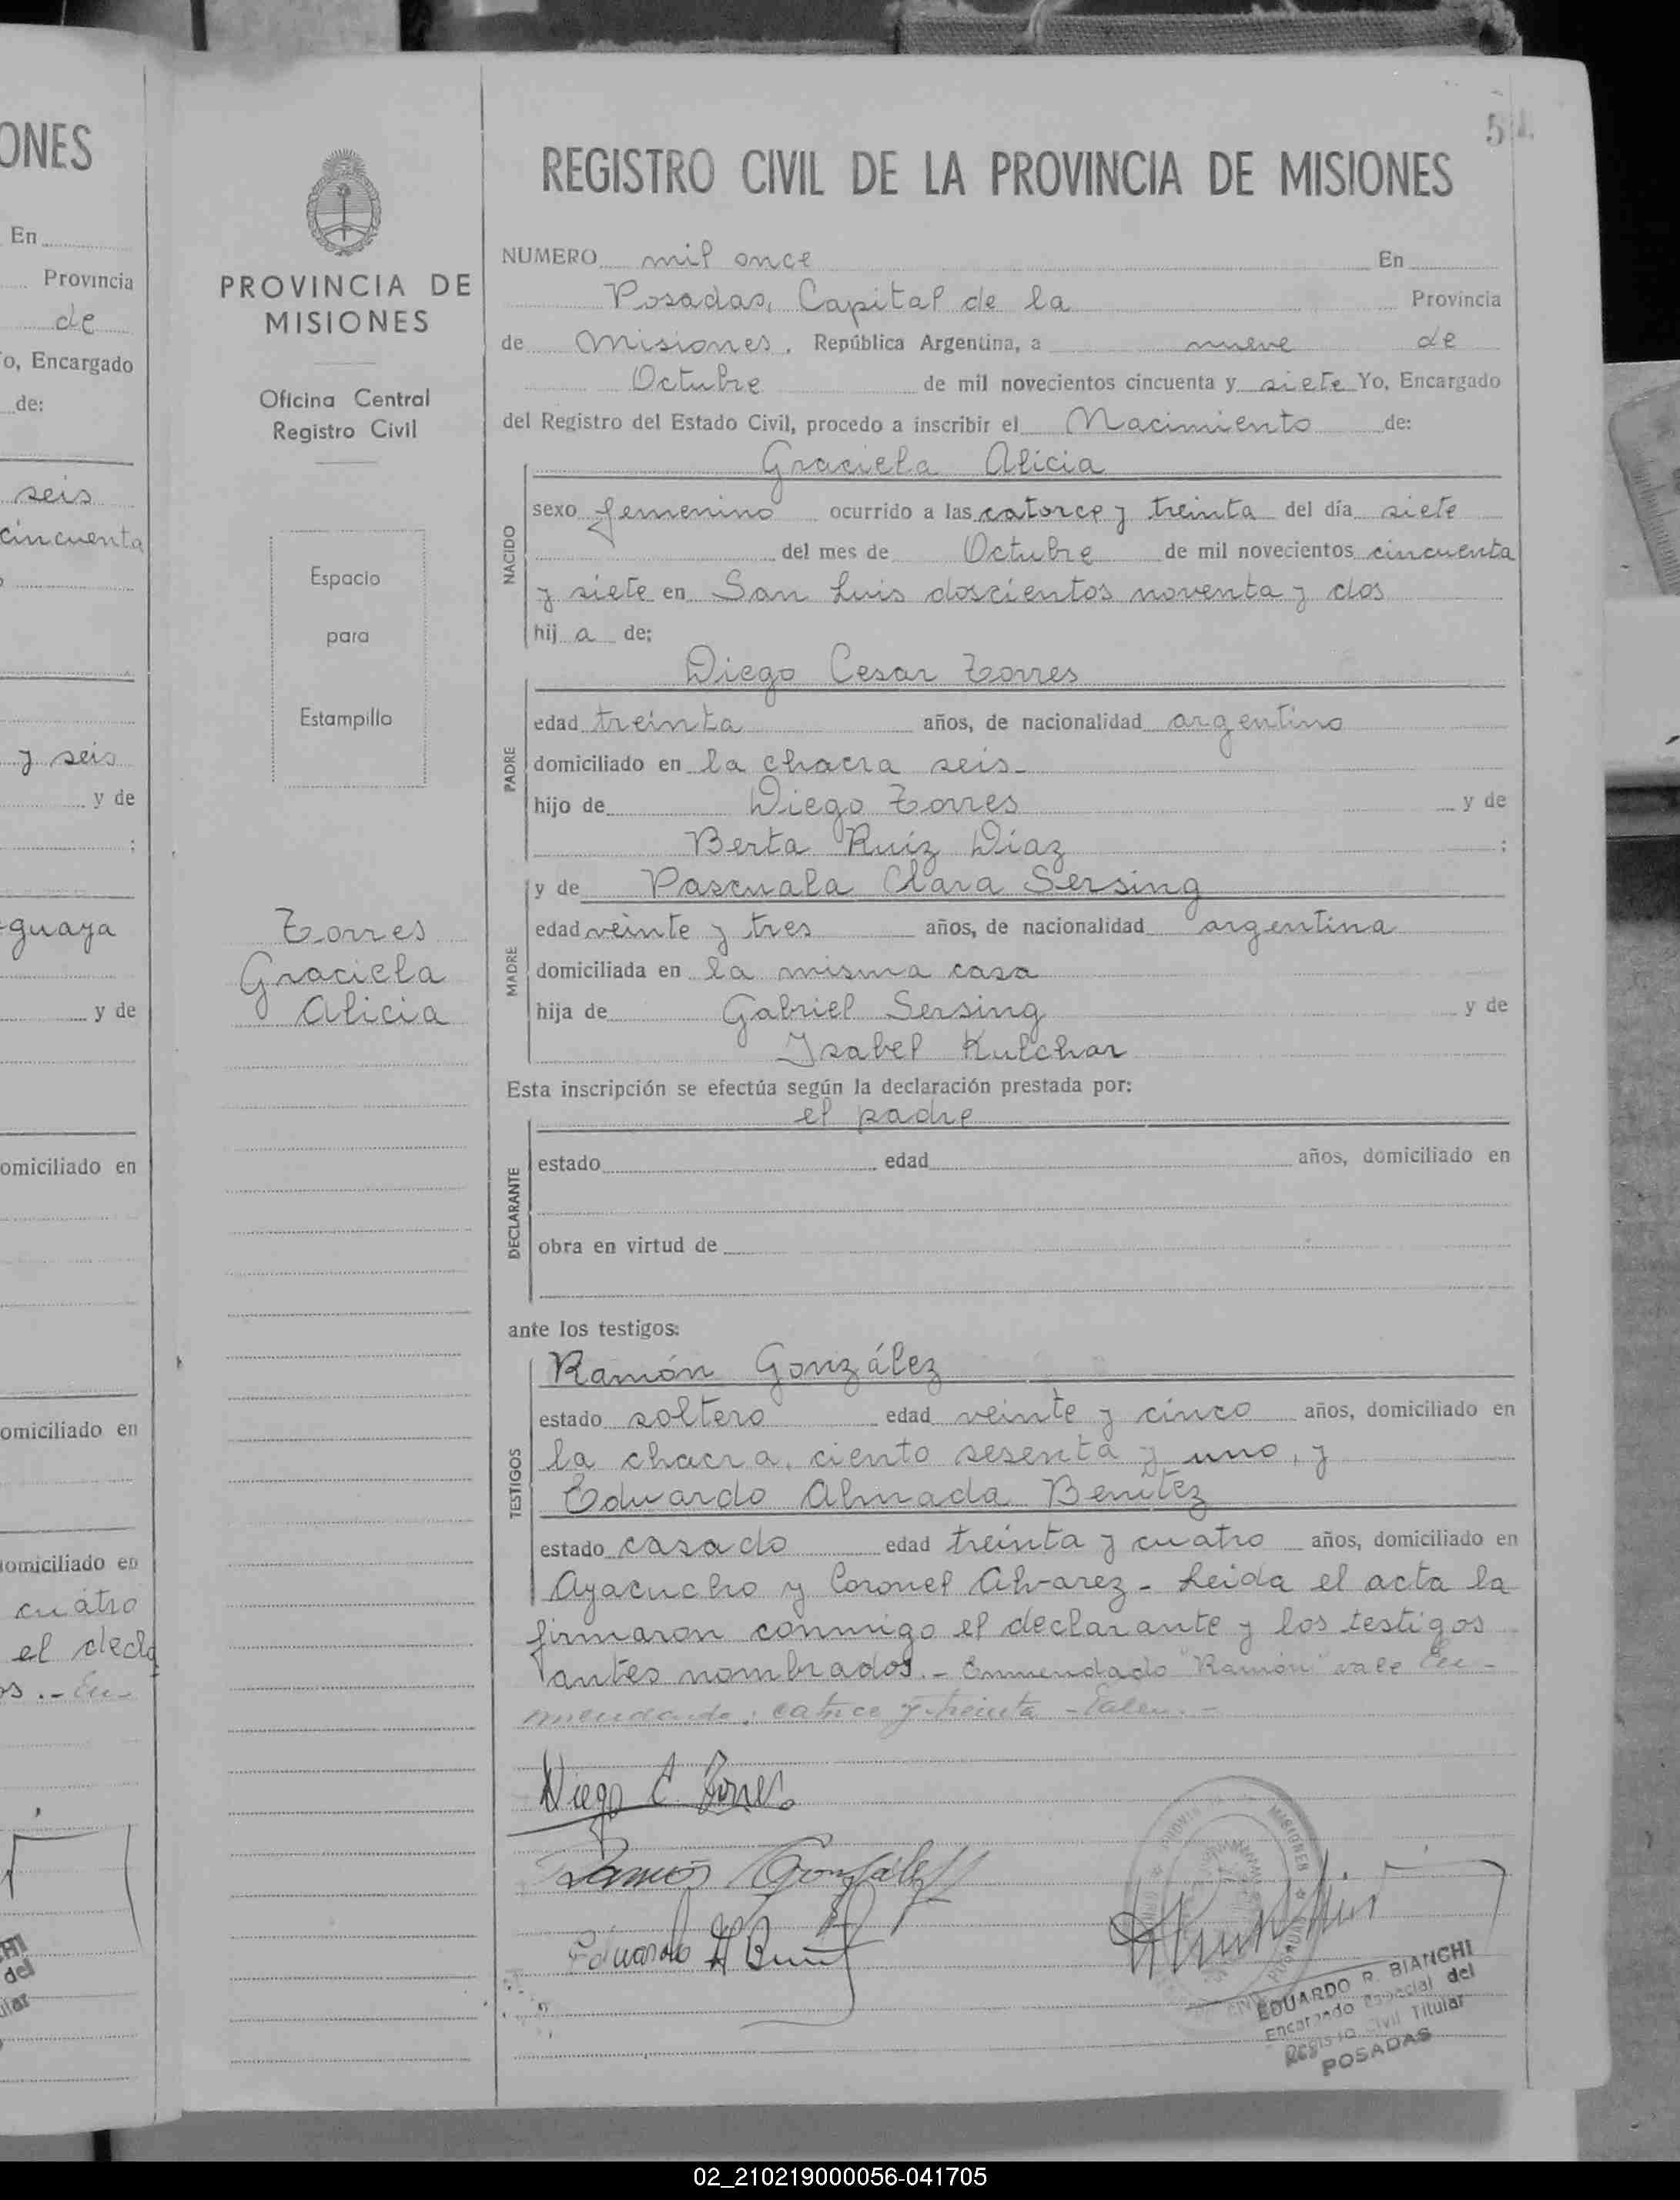 ONES
En
Provincia
de
o, Encargado
de:
seis
cincuenta
y seis
y de
;
guaya
y de
omiciliado en
omiciliado en
omiciliado en
cuatro
el decla
os.- En-
PROVINCIA DE
MISIONES
Oficina Central
Registro Civil
Espacio
para
Estampilla
Torres
Graciela
Alicia
REGISTRO CIVIL DE LA PROVINCIA DE MISIONES
NUMERO mil once En
Posadas, Capital de la Provincia
de Misiones, República Argentina, a nueve de
Octubre de mil novecientos cincuenta y siete Yo, Encargado
del Registro del Estado Civil, procedo a inscribir el Nacimiento de:
Graciela Alicia
NACIDO
sexo femenino ocurrido a las catorce y treinta del día siete
del mes de Octubre de mil novecientos cincuenta
y siete en San Luis doscientos noventa y dos
hij a de;
Diego Cesar Torres
PADRE
edad treinta años, de nacionalidad argentino
domiciliado en la chacra seis-
hijo de Diego Torres y de
Berta Ruíz Díaz ;
y de Pascuala Clara Sersing
MADRE
edad veinte y tres años, de nacionalidad argentina
domiciliada en la misma casa
hija de Gabriel Sersing y de
Isabel Kulchar
Esta inscripción se efectúa según la declaración prestada por:
el padre
DECLARANTE
estado edad años, domiciliado en
obra en virtud de
ante los testigos:
Ramón González
TESTIGOS
estado soltero edad veinte y cinco años, domiciliado en
la chacra, ciento sesenta y uno, y
Eduardo Almada Benítez
estado casado edad treinta y cuatro años, domiciliado en
Ayacucho y Coronel Alvarez- Leida el acta la
firmaron conmigo el declarante y los testigos
antes nombrados.- Enmendado "Ramón" vale En-
mendado: catorce y treinta -Valen.-
Diego C. Torres
Ramón González
Eduardo A Benítez
MISIONES
POSADAS
EDUARDO R. BIANCHI
Encargado Especial del
Registro Civil Titular
POSADAS
02_210219000056-041705